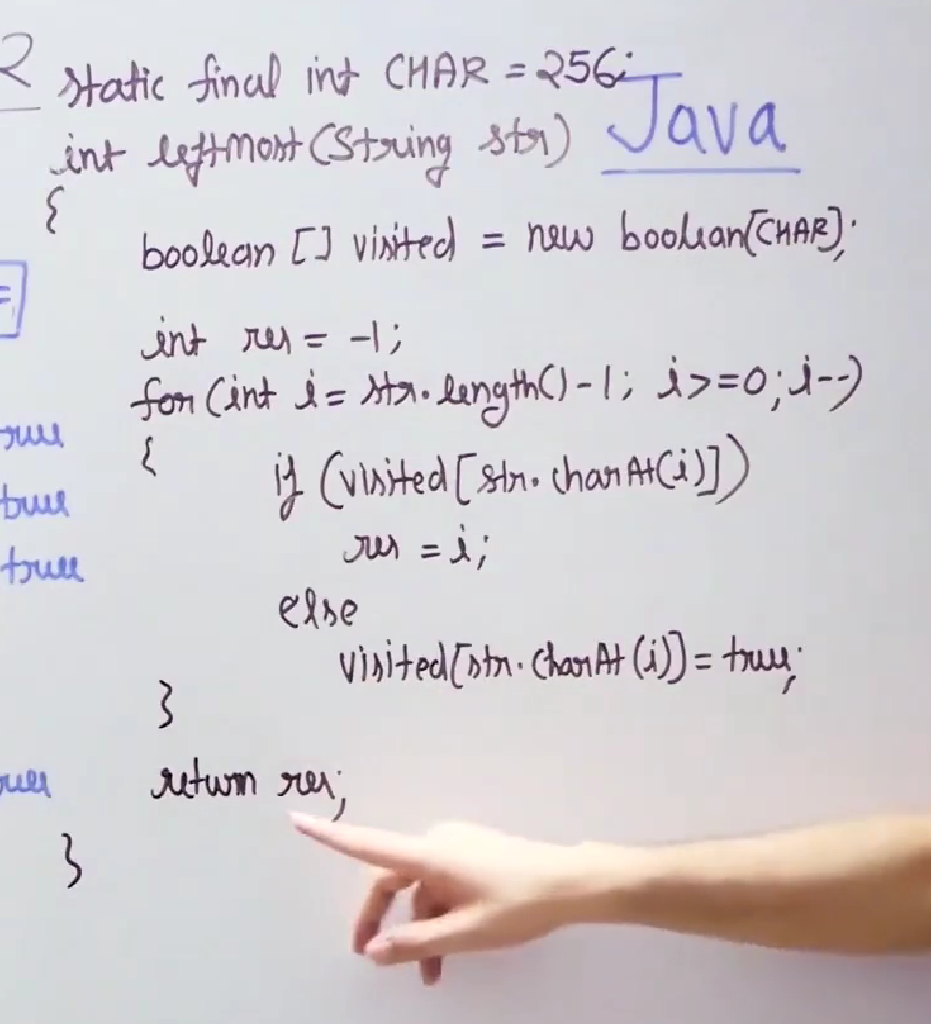 2
static final int CHAR = 256;
int leftmost(String str)
Java
{
boolean [] visited = new boolean[CHAR];
int res = -1;
for (int i = str.length()-1; i>=0; i--)
{
if (visited [str.charAt(i)])
res = i;
else
visited[str.charAt(i)] = true;
}
return res;
}
true
true